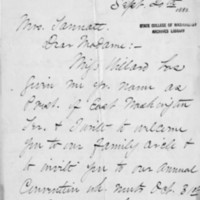 Sept 20th 1882
STATE COLLEGE OF WASHINGTON
ARCHIVES LIBRARY
Mrs. Tannatt
Dear Madame:-
Miss Willard has
given me yr. name as
Prest. of East Washington
& I write to welcome
you to our family circle &
to invite you to our annual
Convention wh. meets Oct. 8